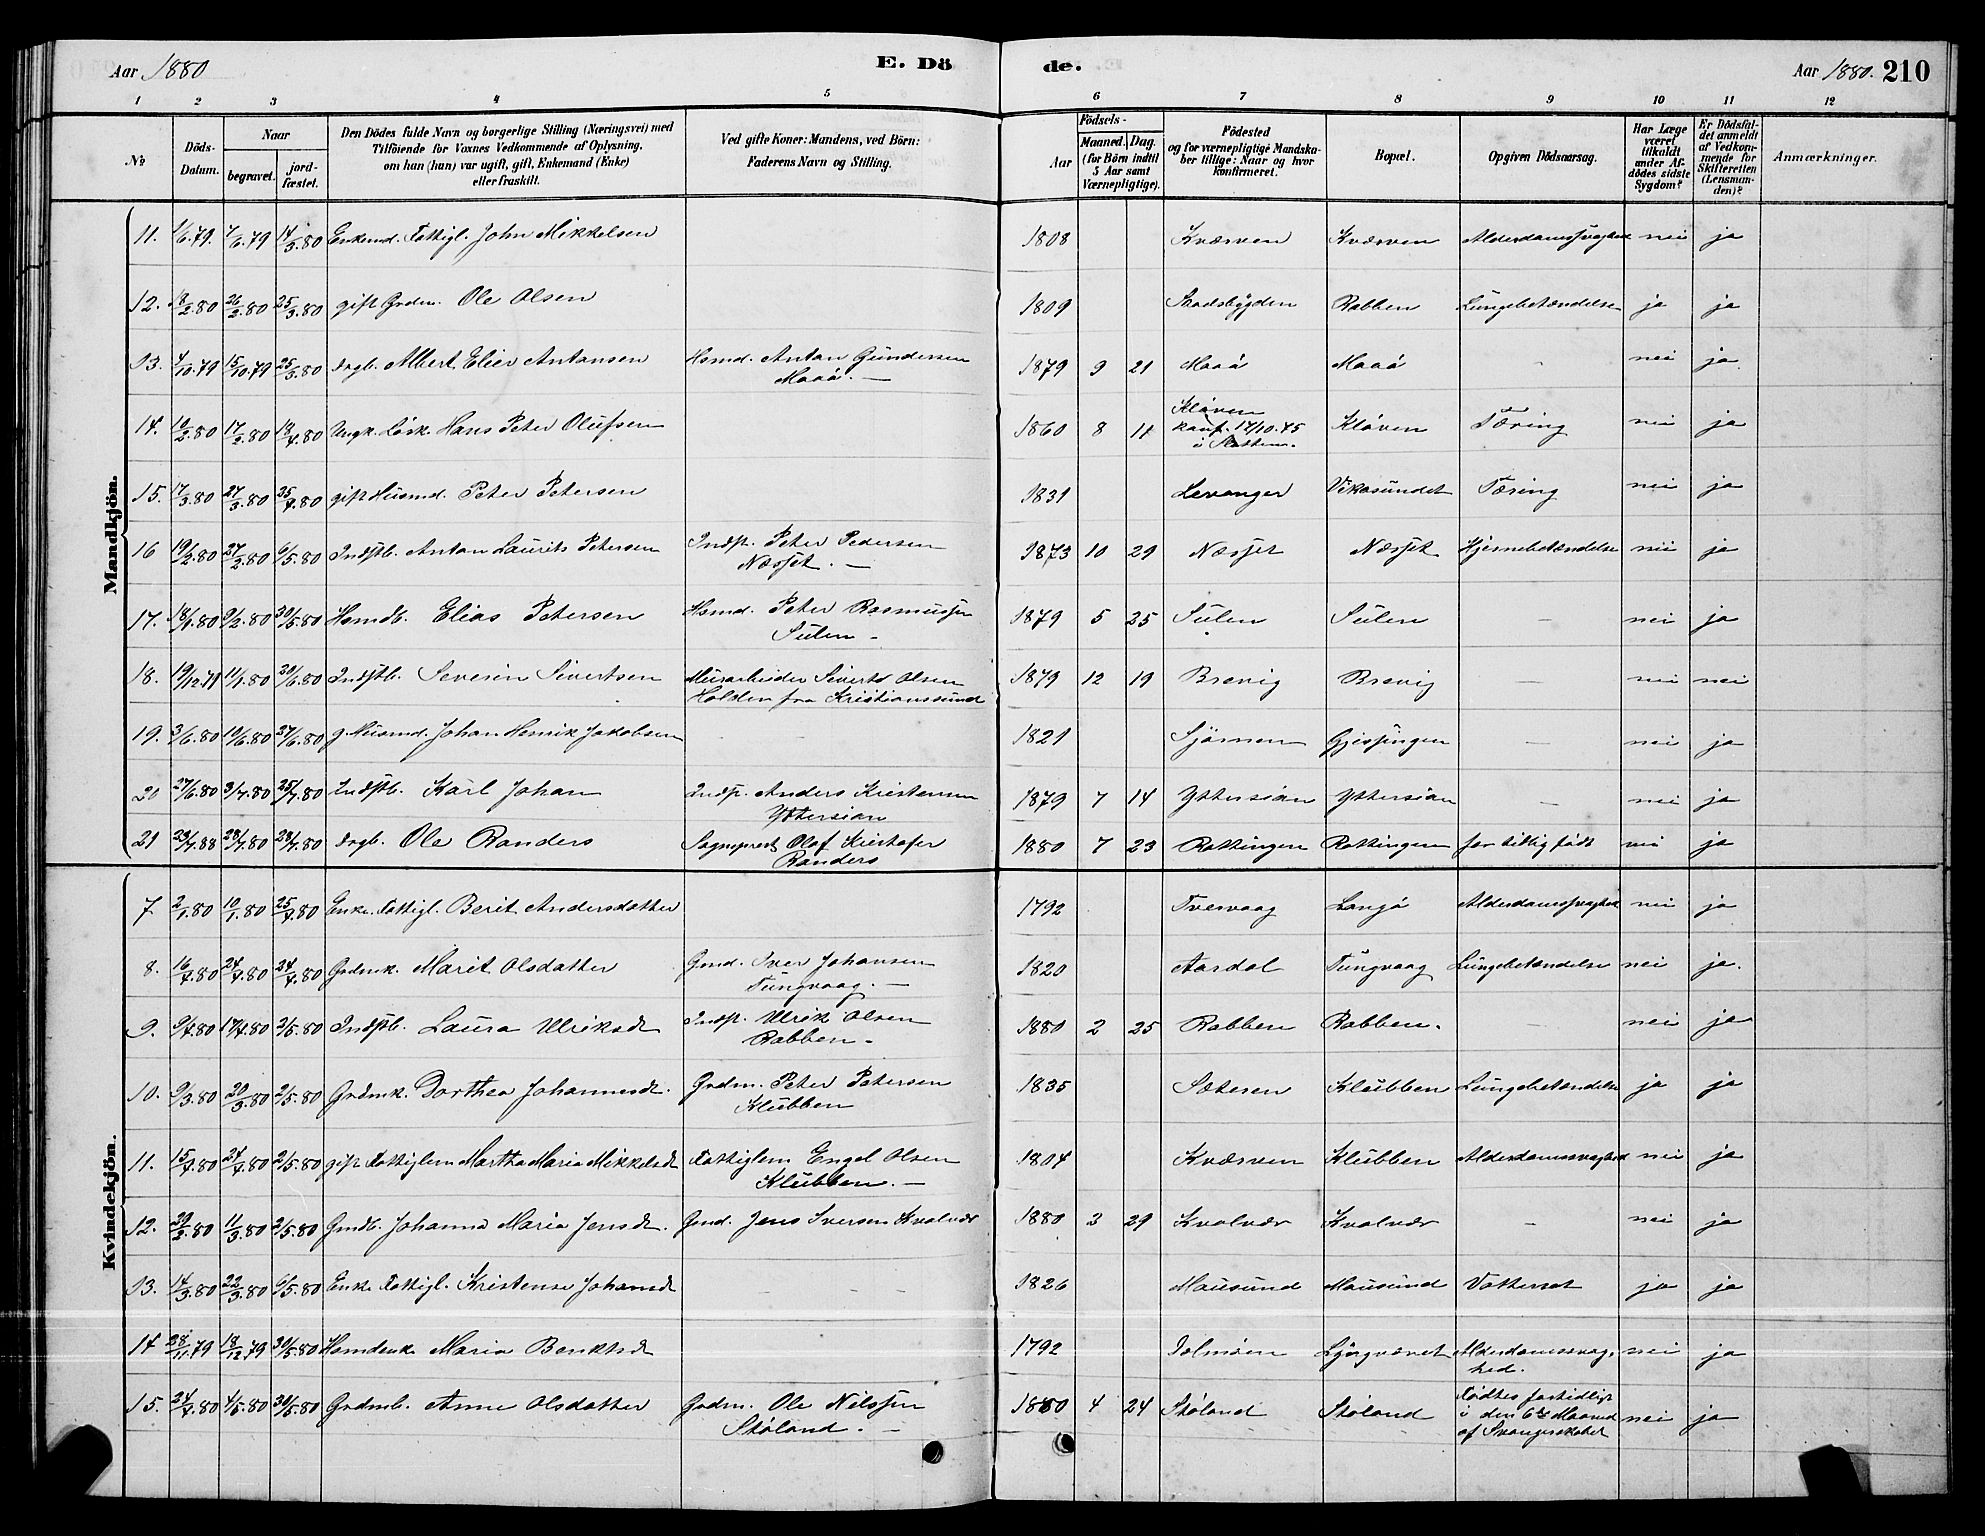 Aar 1880
E. Dö
de.
Aar 1880. 210
1 2 3 4 5 6 7 8 9 10 11 12
No
Döds-Datum.
Naar
begravet.
jord-fæstet.
Den Dödes fulde Navn og borgerlige Stilling (Næringsvei) med
Tilföiende for Voxnes Vedkommende af Oplysning,
om han (hun) var ugift, gift, Enkemand (Enke)
eller fraskilt.
Ved gifte Koner: Mandens, ved Börn:
Faderens Navn og Stilling.
Aar
Födsels-
Maaned. Dag.
(for Börn indtil
5 Aar samt
Værnepligtige).
Födested
og for værnepligtige Mandska-
ber tillige: Naar og hvor
konfirmeret.
Bopæl.
Opgiven Dödsaarsag.
Har Læge
været
tilkaldt
under Af-
dödes sidste
Sygdom?
Er Dödsfal-
det anmeldt
af Vedkom-
mende for
Skifteretten
(Lensman-
den)?
Anmærkninger.
Mandkjön.
11. 1/6.79. 7/6.79 14/3.80 Enkemd. Fattigl. John Mikkelsen 1808 Kværven Kværven Alderdomssvaghed nei ja
12. 18/2.80 26/2.80 25/3.80 gift Grdm. Ole Olsen 1809 Stadsbygden Rabben Lungebetændelse ja ja
13. 4/10.79 15/10.79 25/3.80 drgb. Albert Elier Antonsen Hsmd. Anton Gundersen 1879 9 21 Maaö Maaö - nei ja
Maaö. -
14. 10/2.80 17/2.80 18/4.80 Ungk. Løsk. Hans Peter Olufsen 1860 8 11 Kløven Kløven Tæring nei ja
konf. 17/10.75
15. 17/3.80 27/3.80 25/4.80 gift Husmd. Peter Petersen 1831 Levanger Vikasundet Tæring nei ja
16 19/2.80 27/2.80 6/5.80 Indstb. Anton Laurits Petersen Indst. Peter Pedersen 1873 10 29 Næsset Næsset Hjernebetændelse nei ja
Næsset. -
17. 18/1.80 9/2.80 30/5.80 Hsmdb. Elias Petersen Hsmd. Peter Rasmussen 1879 5 25 Sulen Sulen - nei ja
Sulen -
18. 19/12.79 11/1.80 20/6.80 Indstb. Severin Sivertsen Murarbeider Sivert Olsen 1879 12 19 Brevig Brevig - nei nei
Holden fra Kristianssund
19. 3/6.80 10/6.80 27/6.80 g. Husmd. Johan Henrik Jakobsen - - 1821 Sjömen Gjessingen - nei ja
20 27/6.80 3/7.80 25/7.80 Indstb. Karl Johan Indst. Anders Kristensen 1879 7 14 Yttersian Yttersian - nei ja
Yttersian
21 23/7.88 28/7.80 28/7.80 drgb. Ole Randers Sogneprest Olaf Kristofer 1880 7 23 Rottingen Rottingen for tidlig født nei ja
Randers
Kvindekjön.
7. 2/1.80 10/1.80 25/3.80 Enke. Fattigl. Berit Andersdatter 1792 Tvervaag Langö Alderdomssvaghed nei ja
8. 16/4.80 24/4.80 24/4.80 Grdmk. Marit Olsdatter Gmd. Iver Johansen 1820 Aardal Tungvaag Lungebetændelse nei ja.
Tungvaag. -
9. 9/4.80 17/4.80 2/5.80 Indstb. Laura Ulriksdt Indst. Ulrik Olsen 1880 2 25 Rabben Rabben. - nei ja
Rabben -
10. 9/3.80 20/3.80 2/5.80 Grdmk. Dorthea Johannesdt. Grdm. Peter Petersen 1835 Sæteren Klubben Lungebetændelse ja ja
Klubben
11. 15/4.80 24/4.80 2/5.80 gift Fattiglem Martha Maria Mikkelsdt Fattiglem Engel Olsen 1804 Kværven Klubben Alderdomssvaghed nei ja
Klubben. -
12. 29/2.80 11/3.80 2/5.80 Gmdb. Johanna Maria Jensdt. Gmd. Jens Iversen Kvalvær 1880 2 29 Kvalvær Kvalvær - nei ja
13. 14/3.80 22/3.80 6/5.80 Enke Fattigl. Kristense Johansdt - - - 1826 Mausund Mausund Vattersot ja ja
14 28/11.79 18/12.79 30/5.80 Hsmdenk. Maria Benktsdt 1792 Dolmöen Ljøsgværet Alderdomssvag- nei ja
hed.
15. 24/4.80 4/5.80 30/5.80 Grdmb. Anne Olsdatter Grdm. Ole Nilssen 1880 4 24 Støland Støland Fødtes fortidligt nei ja
Støland. - i den 6te Maaned
af Svangerskabet